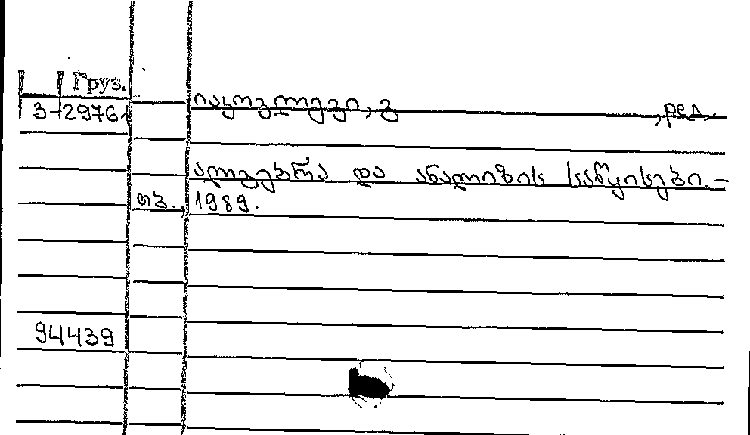 Груз.
3-2976 იაკოვლევი, გ , ред.
ალგებრა და ანალიზის საწყისები.-
თბ., 1989.
94439